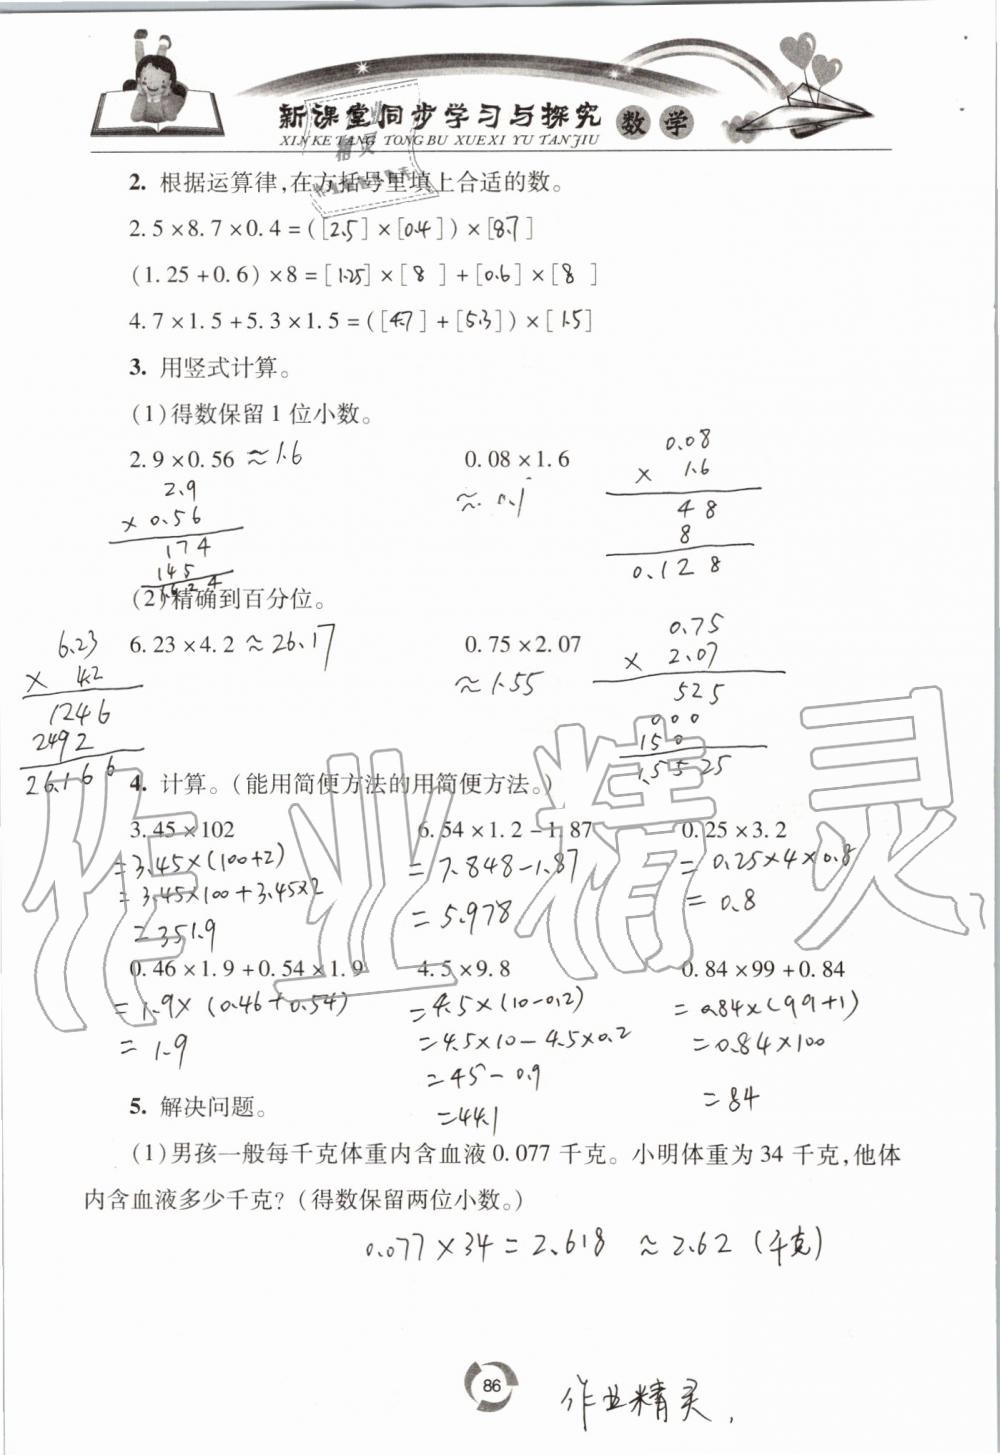 新课堂同步学习与探究 数学
XIN KE TANG TONG BU XUE XI YU TAN JIU
2. 根据运算律,在方括号里填上合适的数。
2.5×8.7×0.4=([2.5]×[0.4])×[8.7]
(1.25+0.6)×8=[1.25]×[8]+[0.6]×[8]
4.7×1.5+5.3×1.5=([4.7]+[5.3])×[1.5]
3. 用竖式计算。
(1)得数保留1位小数。
2.9×0.56≈1.6
2.9
×0.56
174
145
1.624
0.08×1.6
≈0.1
0.08
× 1.6
48
8
0.128
(2)精确到百分位。
6.23×4.2≈26.17
6.23
× 4.2
1246
2492
26.166
0.75×2.07
≈1.55
0.75
× 2.07
525
000
150
1.5525
4. 计算。(能用简便方法的用简便方法。)
3.45×102 6.54×1.2-1.87 0.25×3.2
=3.45×(100+2) =7.848-1.87 =0.25×4×0.8
=3.45×100+3.45×2 =5.978 =0.8
=351.9
0.46×1.9+0.54×1.9 4.5×9.8 0.84×99+0.84
=1.9×(0.46+0.54) =4.5×(10-0.2) =0.84×(99+1)
=1.9 =4.5×10-4.5×0.2 =0.84×100
=45-0.9 =84
=44.1
5. 解决问题。
(1)男孩一般每千克体重内含血液0.077千克。小明体重为34千克,他体
内含血液多少千克?(得数保留两位小数。)
0.077×34=2.618 ≈2.62(千克)
86
作业精灵
作业精灵